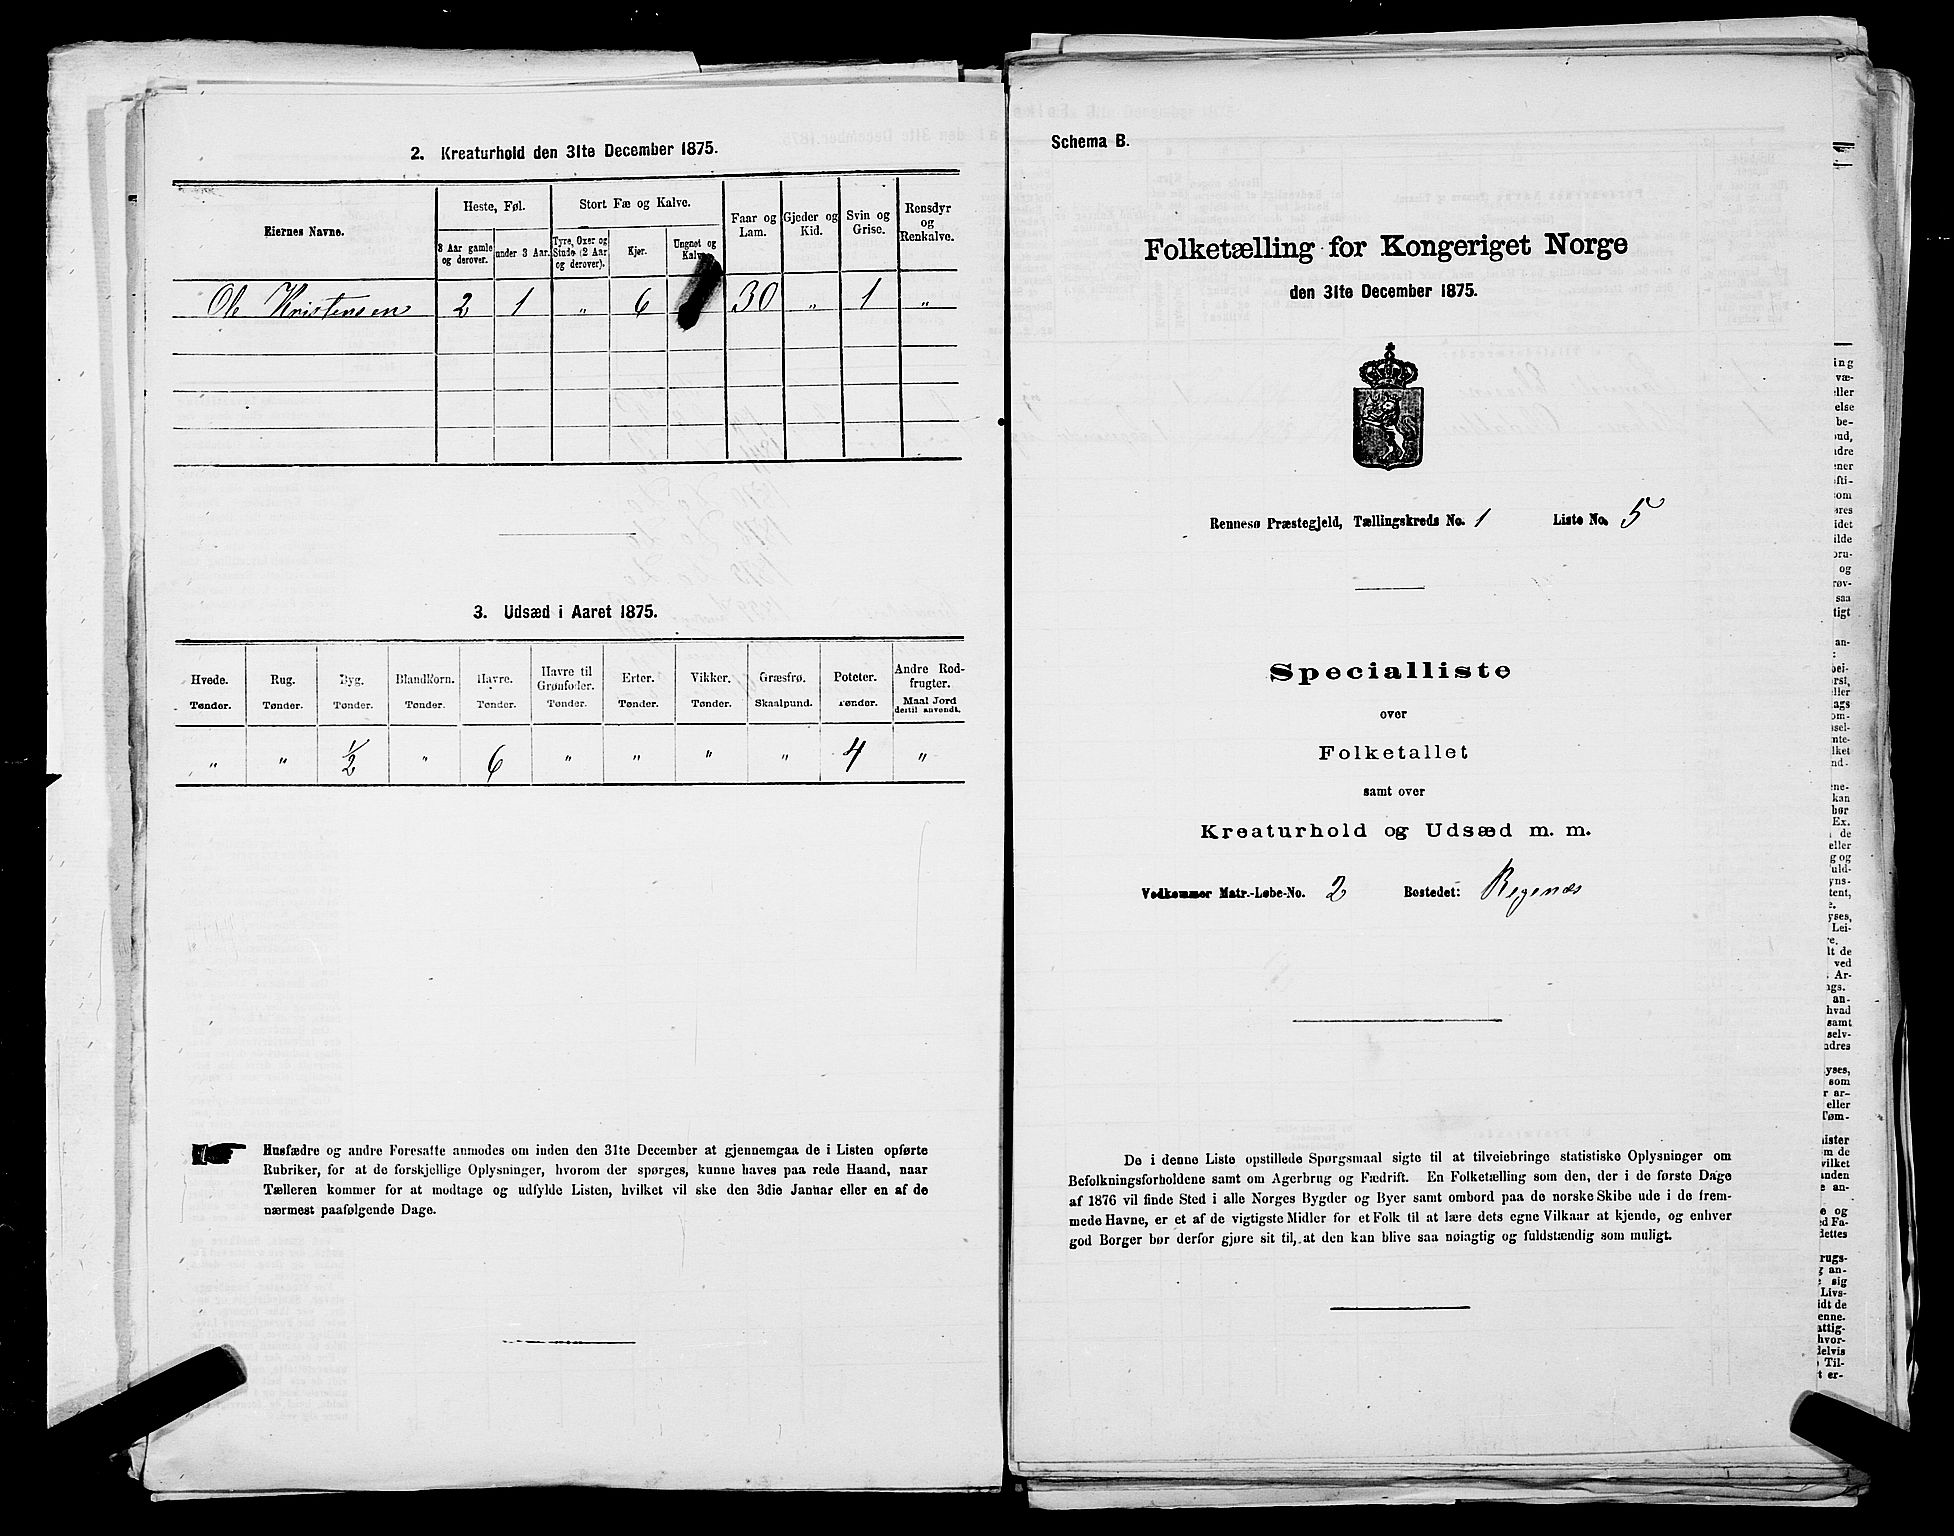 2. Kreaturhold den 31te December 1875.
Eiernes Navne.
Heste, Føl.
Stort Fæ og Kalve.
Faar og Lam.
Gjeder og Kid.
Svin og Grise.
Rensdyr og Renkalve.
3 Aar gamle og derover.
under 3 Aar.
Tyre, Oxer og Stude (2 Aar og derover).
Kjør.
Ungnøt og Kalve
Ole Kristensen 2 1 " 6 30 " 1 "
3. Udsæd i Aaret 1875.
Hvede. Rug. Byg. Blandkorn. Havre. Havre til Grønfoder. Erter. Vikker. Græsfrø. Poteter. Andre Rodfrugter.
Tønder. Tønder. Tønder. Tønder. Tønder. Tønder. Tønder. Tønder. Skaalpund. Tønder. Maal Jord dertil anvendt.
" " ½ " 6 " " " " 4 "
Husfædre og andre Foresatte anmodes om inden den 31te December at gjennemgaa de i Listen opførte
Rubriker, for at de forskjellige Oplysninger, hvorom der spørges, kunne haves paa rede Haand, naar
Tælleren kommer for at modtage og udfylde Listen, hvilket vil ske den 3die Januar eller en af de
nærmest paafølgende Dage.
Schema B.
Folketælling for Kongeriget Norge
den 31te December 1875.
Rennesø Præstegjeld, Tællingskreds No. 1 Liste No. 5
Specialliste
over
Folketallet
samt over
Kreaturhold og Udsæd m. m.
Vedkommer Matr.-Løbe-No. 2 Bostedet: Regenæs
De i denne Liste opstillede Spørgsmaal sigte til at tilveiebringe statistiske Oplysninger om
Befolkningsforholdene samt om Agerbrug og Fædrift. En Folketælling som den, der i de første Dage
af 1876 vil finde Sted i alle Norges Bygder og Byer samt ombord paa de norske Skibe ude i de frem-
mede Havne, er et af de vigtigste Midler for et Folk til at lære dets egne Vilkaar at kjende, og enhver
god Borger bør derfor gjøre sit til, at den kan blive saa nøiagtig og fuldstændig som muligt.